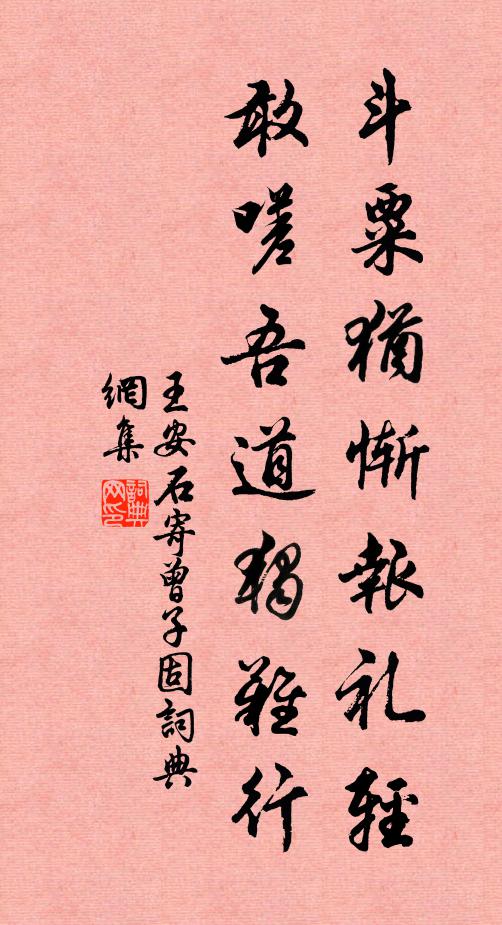 斗粟猶慚報礼輕
敢嗟吾道獨難行
王安石寄曾子固詞典
網集
詞典
网印